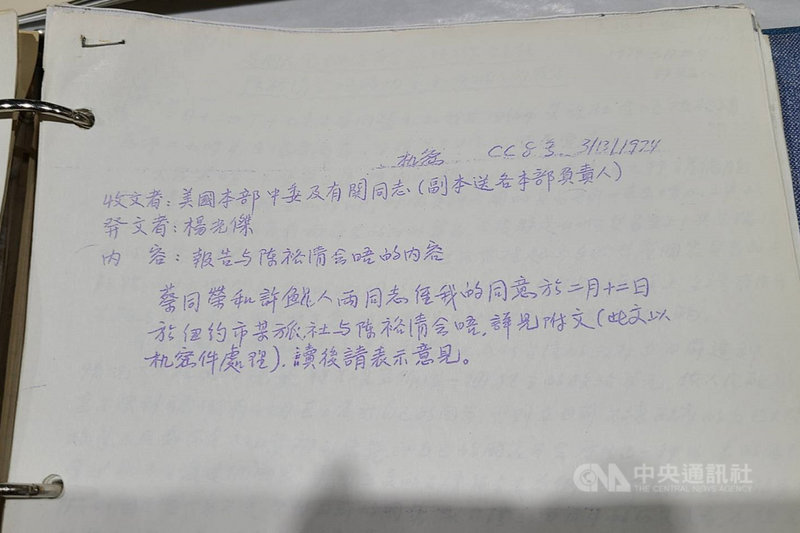 机密 CC8号 3/13/1974
收文者：美國本部中委及有関同志（副本送各本部負責人）
発文者：楊光傑
内 容：報告与陈裕清会晤的内容
蔡同榮和許 人両同志経我的同意於二月十二日
於纽约市某旅社与陈裕清会晤，詳見附文（此文以
机密件處理），讀後請表示意見。
中央通訊社
THE CENTRAL NEWS AGENCY